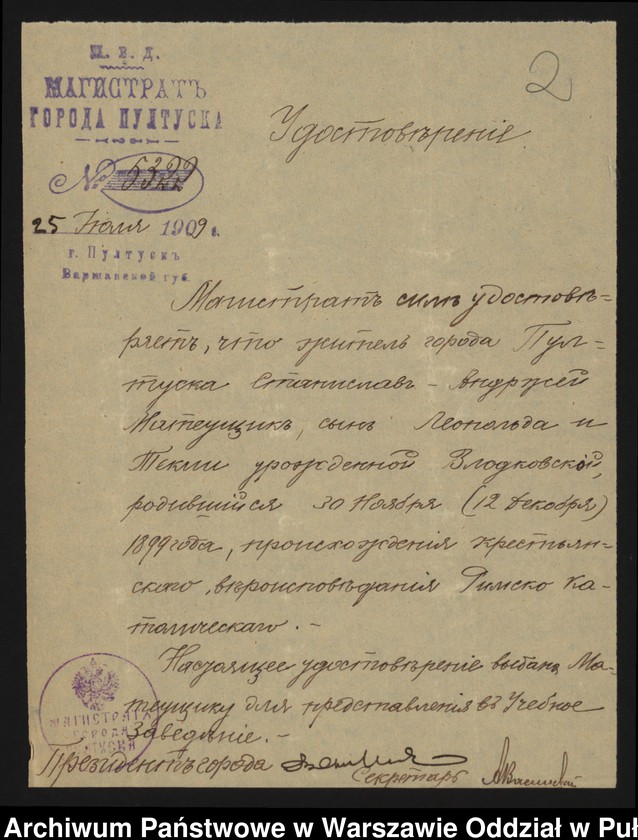 М. В. Д.
МАГИСТРАТЪ
ГОРОДА ПУЛТУСКА
№ 5322
25 Июля 1909 г.
г. Пултускъ
Варшавской губ.
2
Удостовѣреніе
Магистратъ симъ удостовѣ=
ряетъ, что житель города Пул=
туска Станиславъ-Андржей
Матеущикъ, сынъ Леопольда и
Текли урожденной Влодковской,
родившійся 30 Ноября (12 Декабря)
1899 года, происхожденія крестьян-
скаго, вѣроисповѣданія Римско ка-
толическаго. -
Настоящее удостовѣреніе выдано Ма-
теущику для представленія въ Учебное
Заведеніе. -
МАГИСТРАТА
ГОРОДА
ПУЛТУСКА
Президентъ города
Секретарь
Archiwum Państwowe w Warszawie Oddział w Puł